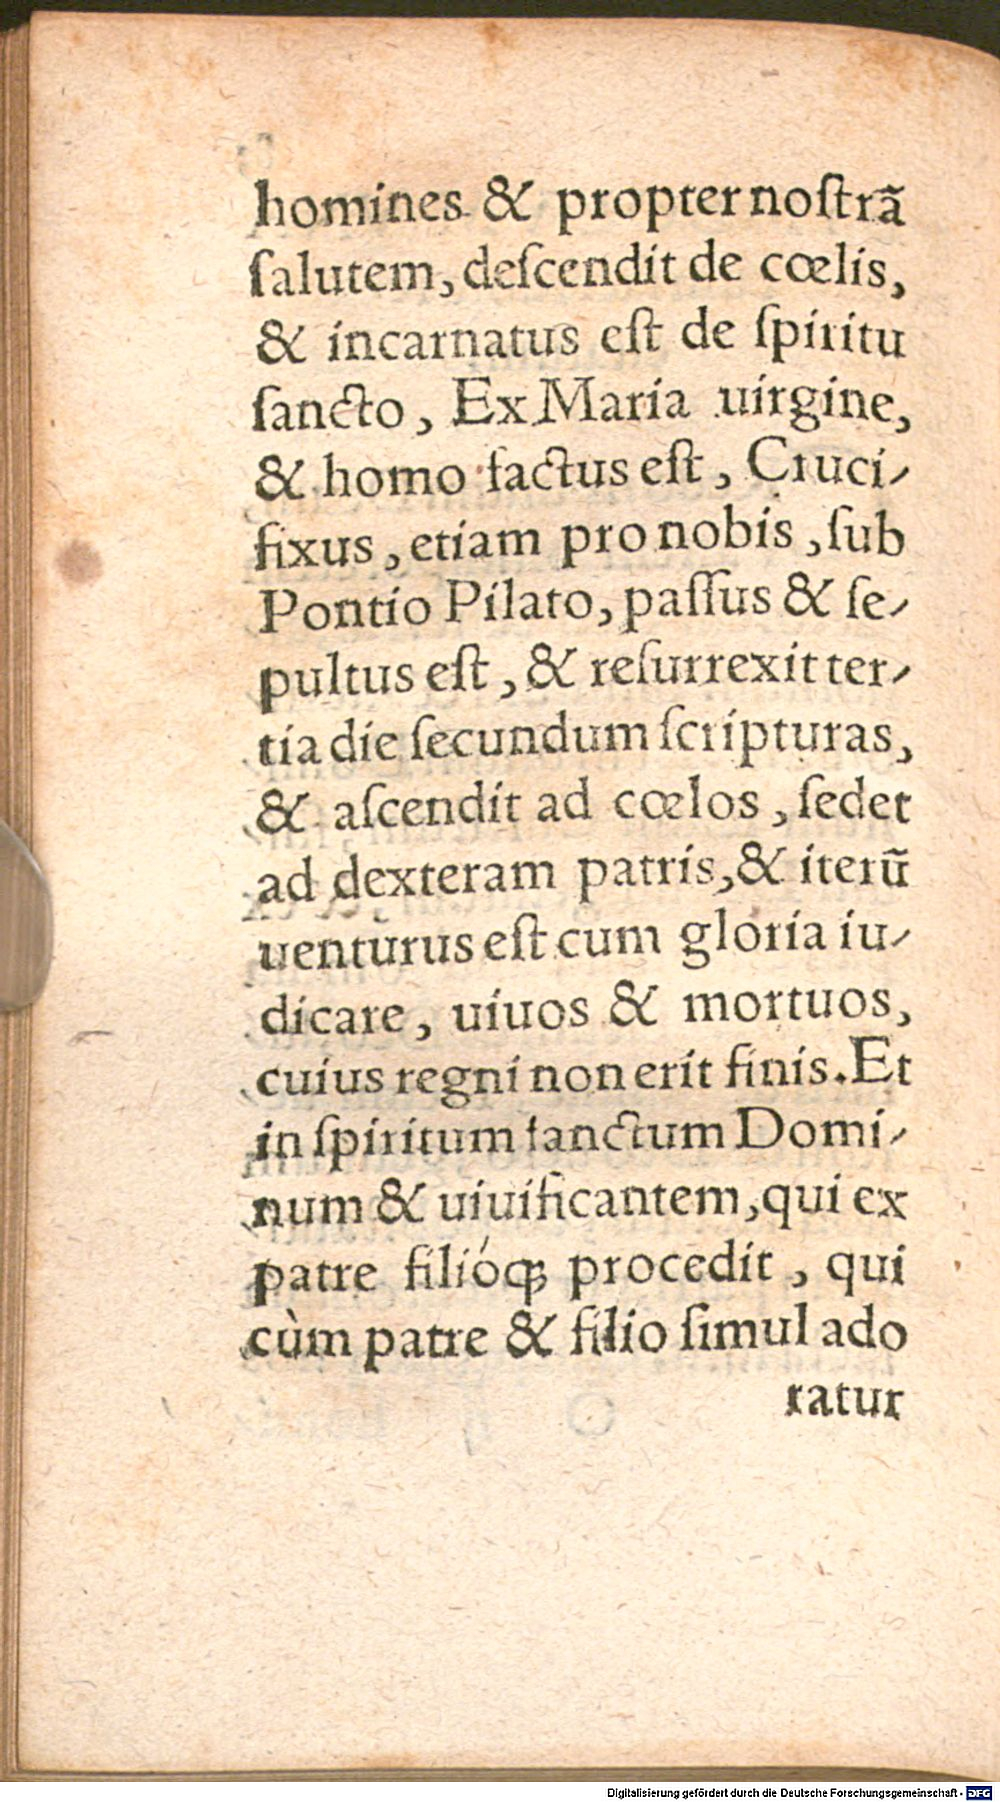 homines & propter noſtrã
ſalutem, deſcendit de cœlis,
& incarnatus eſt de ſpiritu
ſancto, Ex Maria uirgine,
& homo factus eſt, Cruci-
fixus, etiam pro nobis, ſub
Pontio Pilato, paſſus & ſe-
pultus eſt, & reſurrexit ter-
tia die ſecundum ſcripturas,
& aſcendit ad cœlos, ſedet
ad dexteram patris, & iterũ
uenturus eſt cum gloria iu-
dicare, uiuos & mortuos,
cuius regni non erit finis. Et
in ſpiritum ſanctum Domi-
num & uiuificantem, qui ex
patre filióq; procedit, qui
cùm patre & filio ſimul ado
ratur
Digitalisierung gefördert durch die Deutsche Forschungsgemeinschaft - DFG